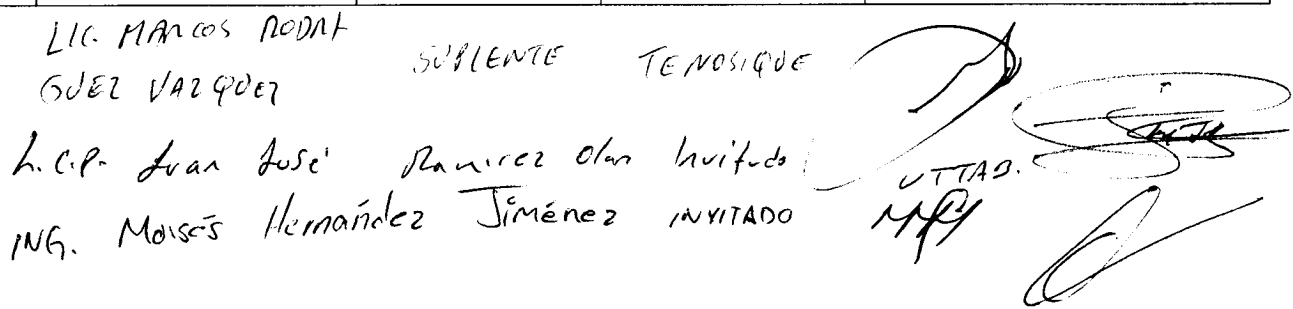 LIC. MARCOS RODRI
GUEZ VAZQUEZ SUPLENTE TENOSIQUE
L.C.P. Juan José Ramirez Olan Invitado UTTAB.
ING. Moisés Hernández Jiménez INVITADO